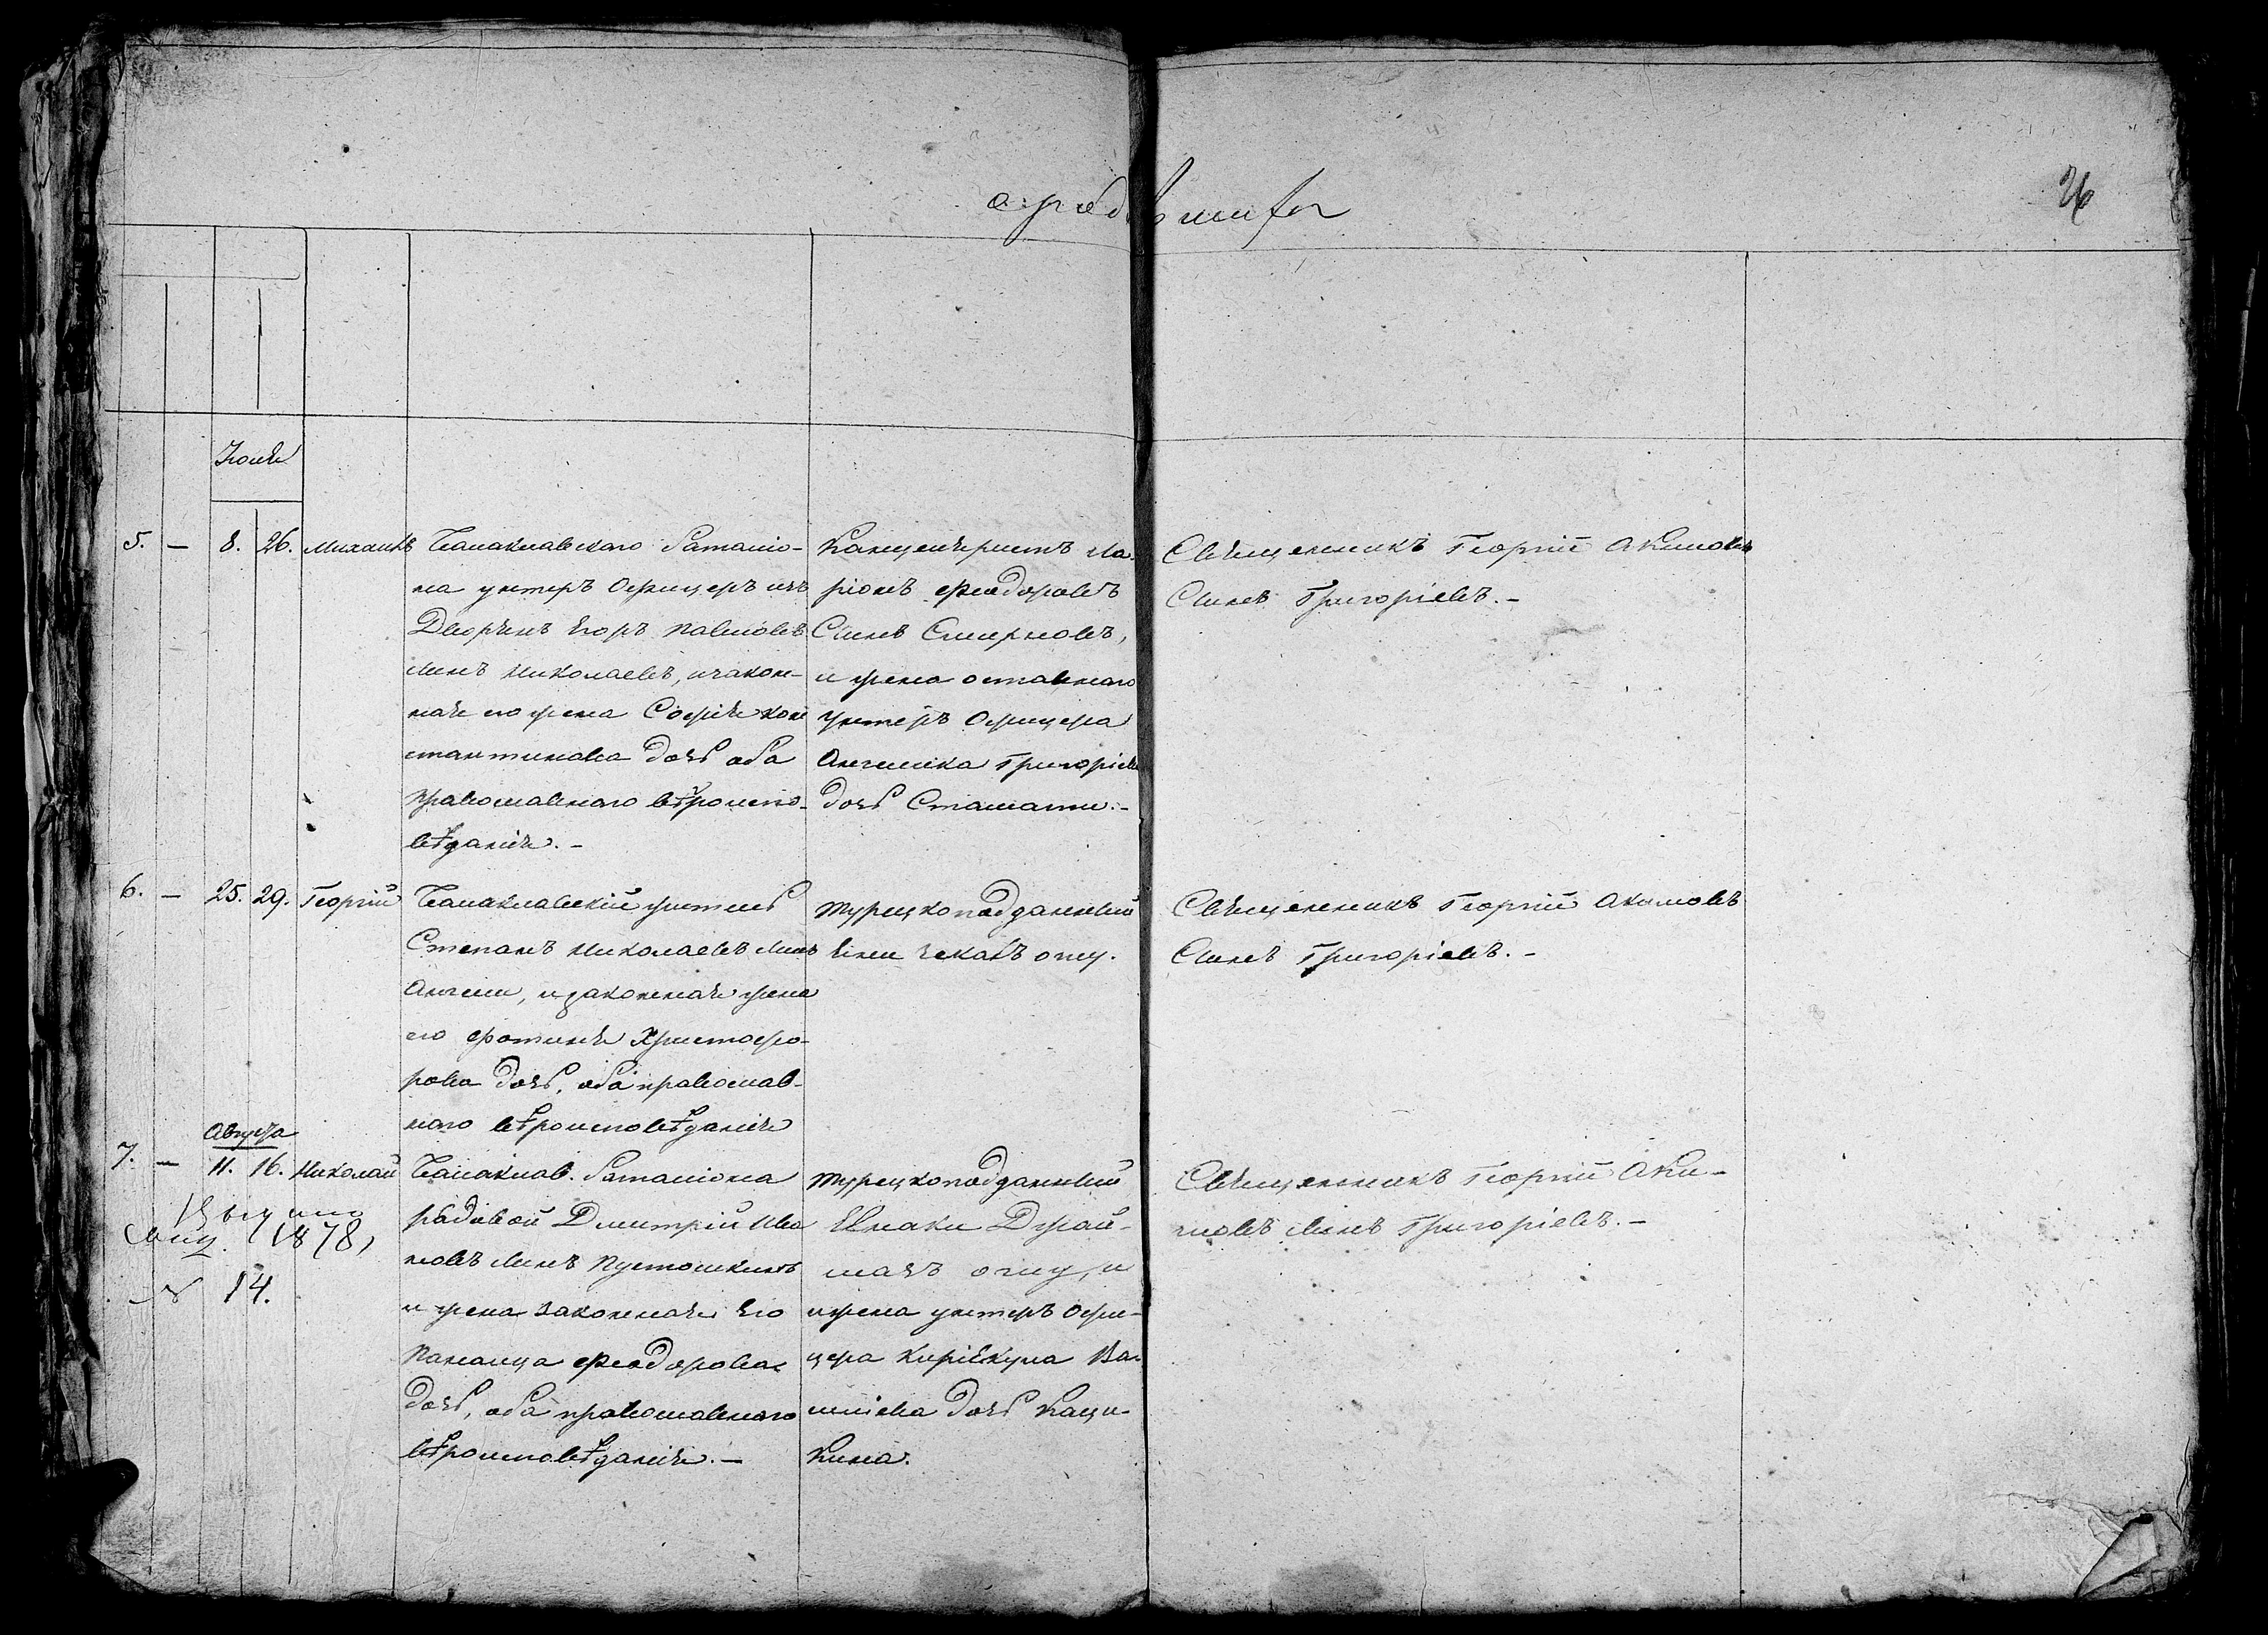 о родившихся
26
Іюля
5. — 8. 26. Михаилъ
Балаклавскаго Баталіо-
на унтеръ Офицеръ изъ
Дворянъ Егоръ Павловъ
сынъ Николаевъ, и закон-
ная его жена Софія Кон
стантинова дочь оба
православнаго вѣроиспо-
вѣданія. —
Канцеляристъ Ила-
ріонъ Феодоровъ
Сынъ Смирновъ,
и жена отставнаго
унтеръ Офицера
Ангелика Григоріева
дочь Стамати. —
Священникъ Георгій Акимовъ
Сынъ Григоріевъ. —
6. — 25. 29. Георгій
Балаклавскій житель
Степанъ Николаевъ сынъ
Ангели, и законная жена
его Фотинія Христофо-
рова дочь, оба православ-
наго вѣроисповѣданія
Турецкоподданный
Яни Чекалъ оглу.
Священникъ Георгій Акимовъ
Сынъ Григоріевъ. —
Августа
7. — 11. 16. Николай
1878,
№ 14.
Балаклав. Баталіона
рядовой Дмитрій Ива
новъ сынъ Пустошкинъ
и жена законная Его
Панаица Феодорова
дочь, оба православнаго
вѣроисповѣданія. —
Турецкоподданный
оглу, и
жена унтеръ Офи-
цера Киріякула Ва-
силіева дочь Каци-
кина.
Священникъ Георгій Аки-
мовъ сынъ Григоріевъ. —